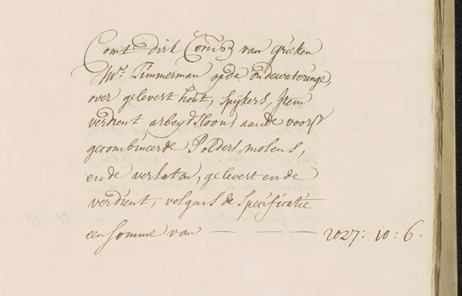 Comt Dirk Cornisz van Grieken
Mr. Timmerman op de Oudewateringe,
over gelevert hout, Spijkers, Item
verdient arbeydsloon, aan de voorsz
gecombineerde Polders molens,
en de verlaten, gelevert en de
verdient, volgens de Specificatie
een somme van — — — — 2027: 10: 6.